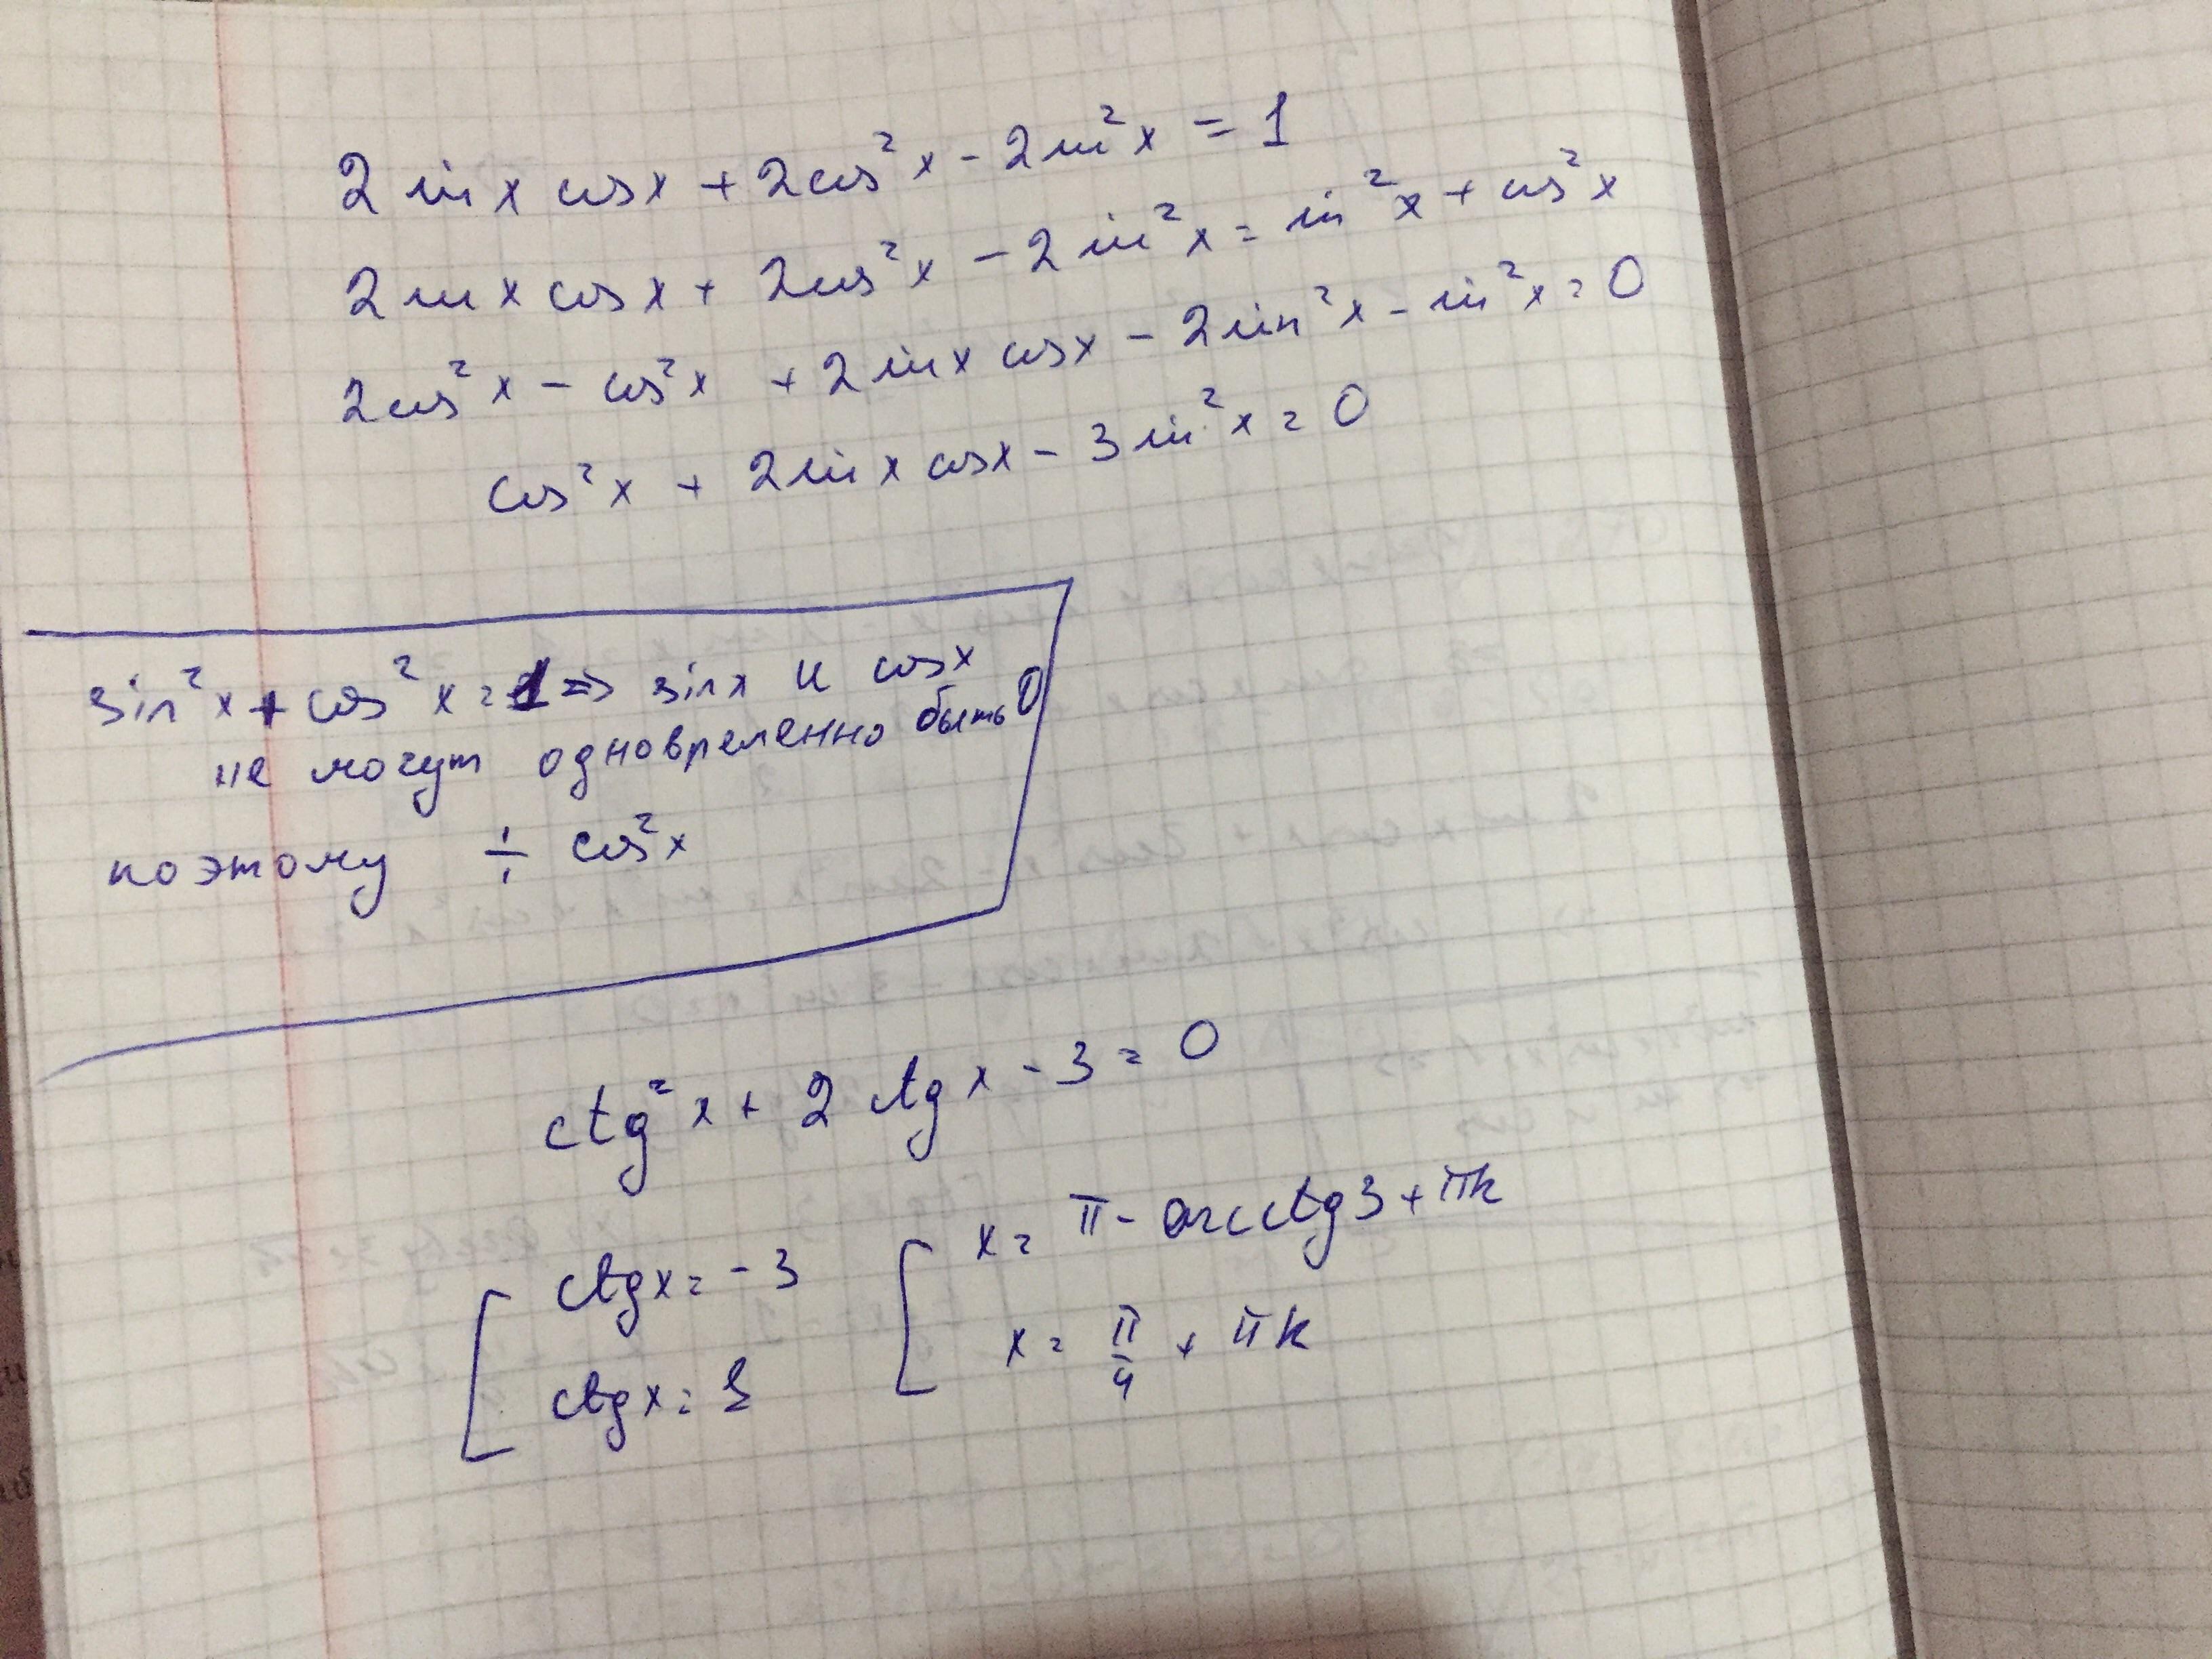 2 sin x cos x + 2cos²x - 2sin²x = 1
2 sin x cos x + 2cos²x - 2 sin²x = sin²x + cos²x
2cos²x - cos²x + 2 sin x cos x - 2sin²x - sin²x = 0
cos²x + 2sin x cos x - 3 sin²x = 0
sin²x + cos²x = 1 => sin x и cos x
не могут одновременно быть 0
поэтому ÷ cos²x
ctg²x + 2 ctg x - 3 = 0
[ ctg x = -3 [ x = π - arcctg 3 + πk
ctg x = 1 x = π/4 + πk